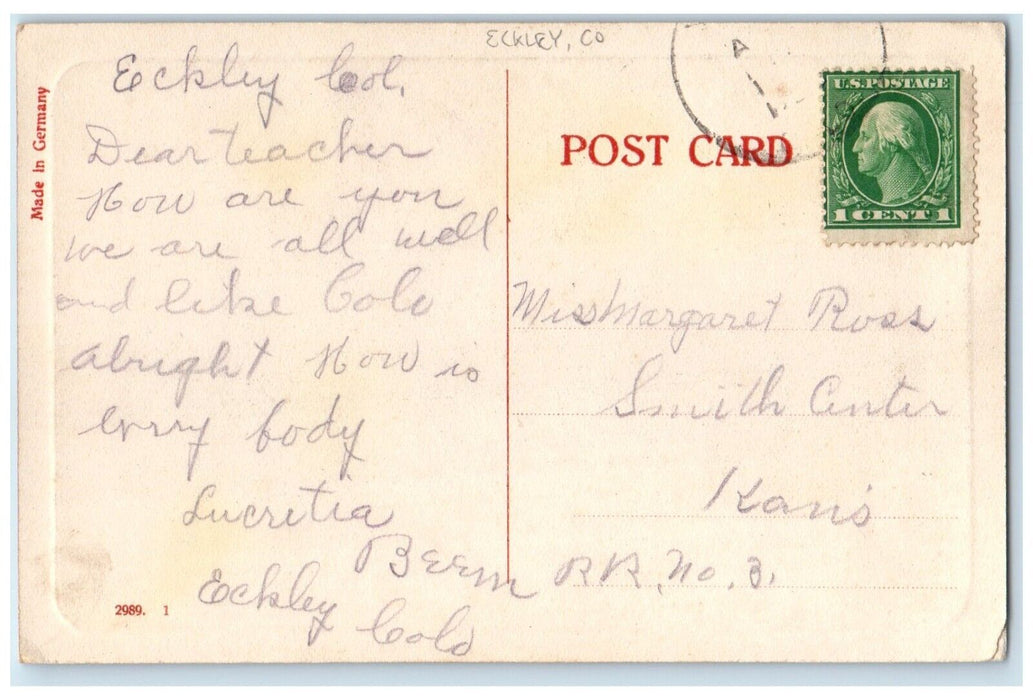 ECKLEY, CO
Made in Germany
Eckley Col.
Dear teacher
How are you
we are all well
and like Colo
alright How is
evry body
Lucretia
Beem
Eckley
Colo
2989. 1
POST CARD
U.S. POSTAGE
1 CENT 1
Miss Margaret Ross
Smith Center
Kans
RR, No. 3.